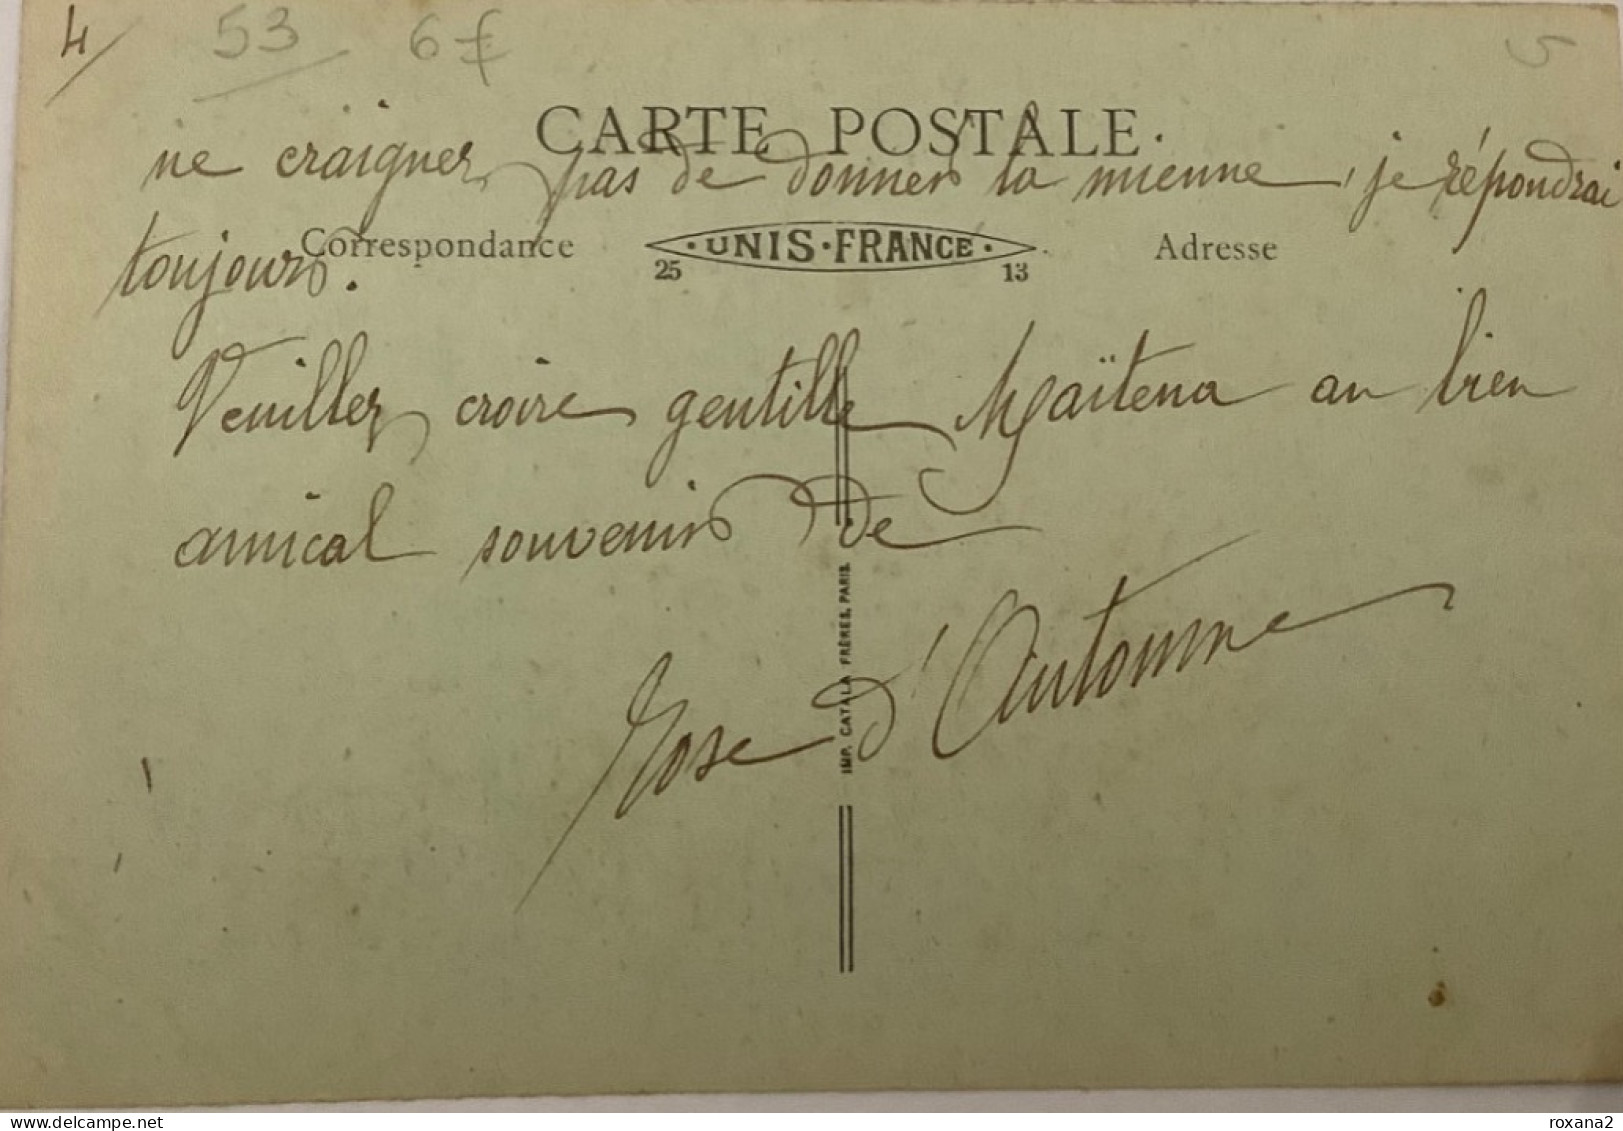 4/ 53 6€ 5
CARTE POSTALE
ne craignez pas de donner la mienne, je répondrai
Correspondance
UNIS-FRANCE
25 13
Adresse
toujours.
Veuillez croire gentille Maïtena au bien
amical souvenir de
Rose d'Automne
IMP. CATALA FRÈRES, PARIS.
www.delcampe.net
roxana2